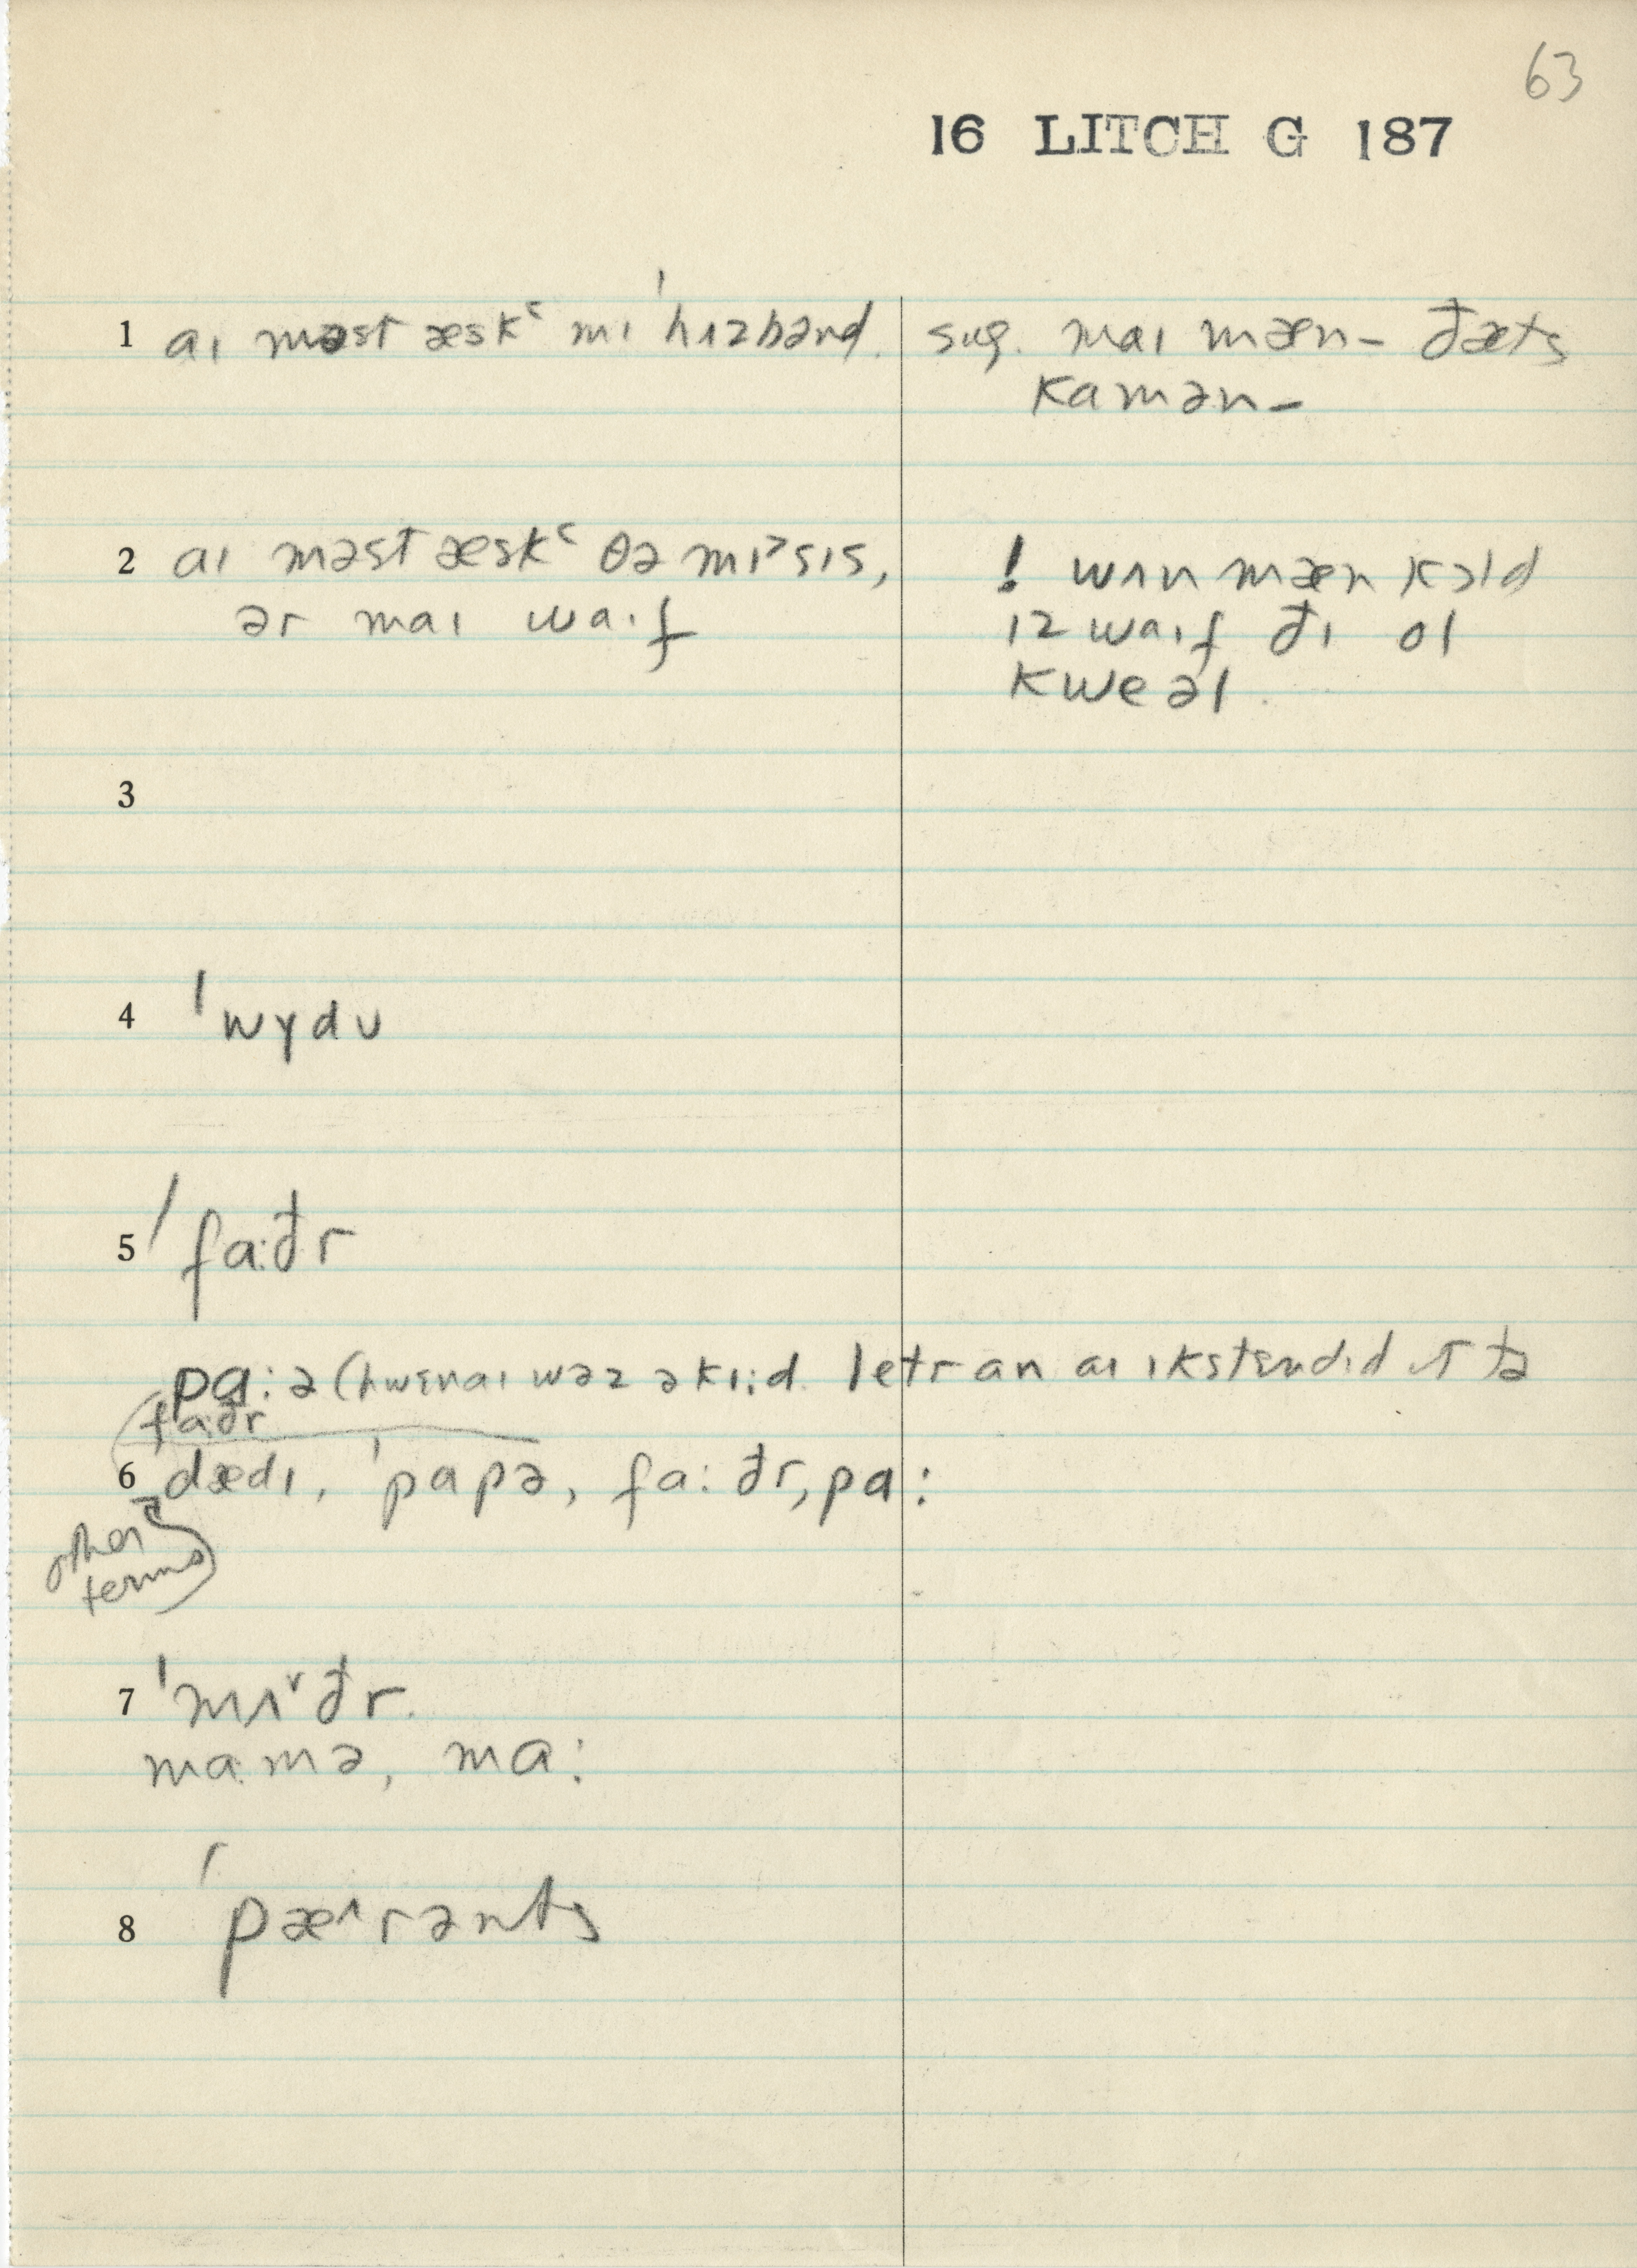 63
16 LITCH G 187
1 aɪ məst æskʿ mɪ ˈhɪzbənd. sug. maɪ mæn – đæts
kamən –
2 aɪ məst æskʿ θə mɪ˃sɪs, ! wʌn mæn kɔld
ər maɪ waɪf ɪz waɪf đɪ ol
kweəl.
3
4 ˈwɣdʊ
5 ˈfa:đr
pa: ə (hwɛnaɪ wəz ə kɪ;d. letr an aɪ ɪkstɛndɪd ɪt tə
fa:đr
6 dædɪ, ˈpapə, fa: đr, pa:
other
terms
7 ˈmʌ˅đr.
ma.mə, ma:
8 ˈpæ˄rənts